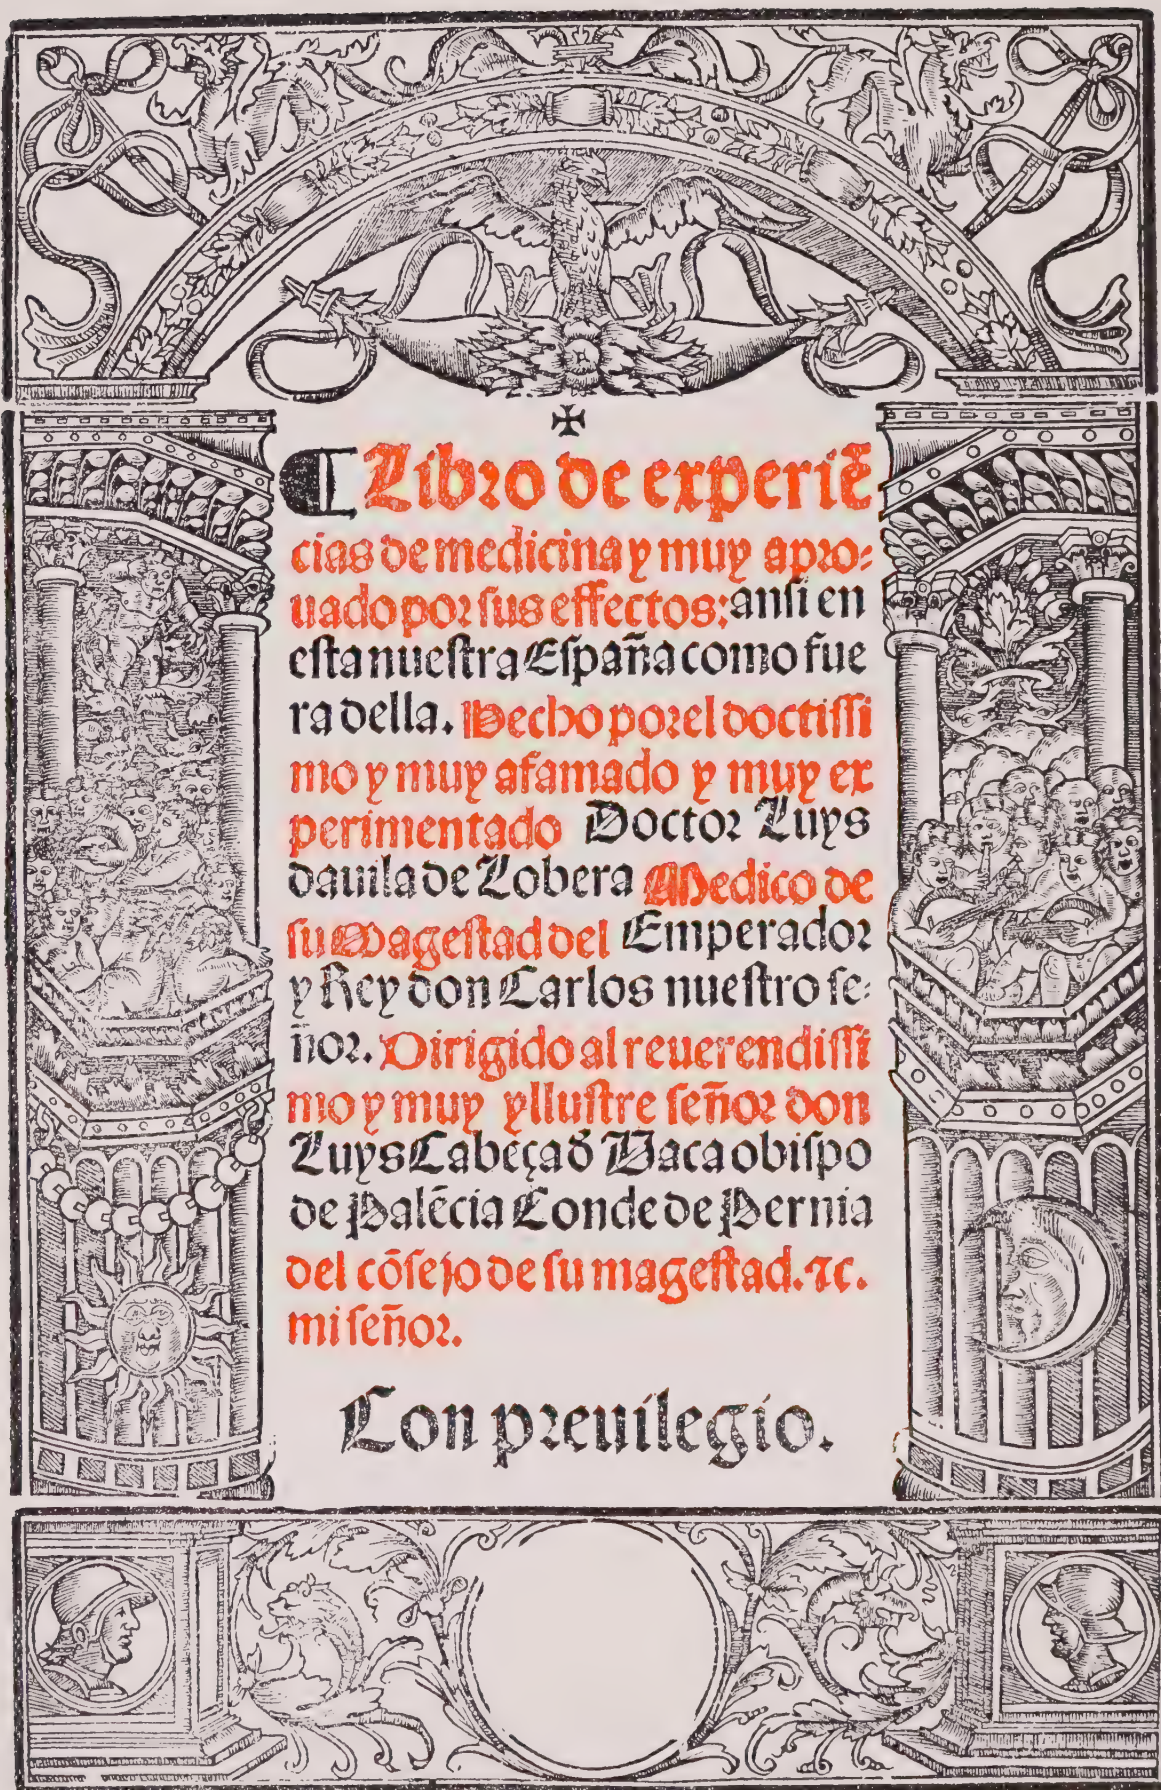 ✠
¶ Libro de experiẽ
cias de medicina y muy apro-
uado por sus effectos: ansi en
esta nuestra España como fue
ra della. Hecho por el doctissi
mo y muy afamado y muy ex
perimentado Doctor Luys
dauila de Lobera Medico de
su Magestad del Emperador
y Rey don Carlos nuestro se-
ñor. Dirigido al reuerendissi
mo y muy yllustre señor don
Luys Cabeça đ Vaca obispo
de Palẽcia Conde de Pernia
del cõsejo de su magestad. ⁊c.
mi señor.
Con preuilegio.